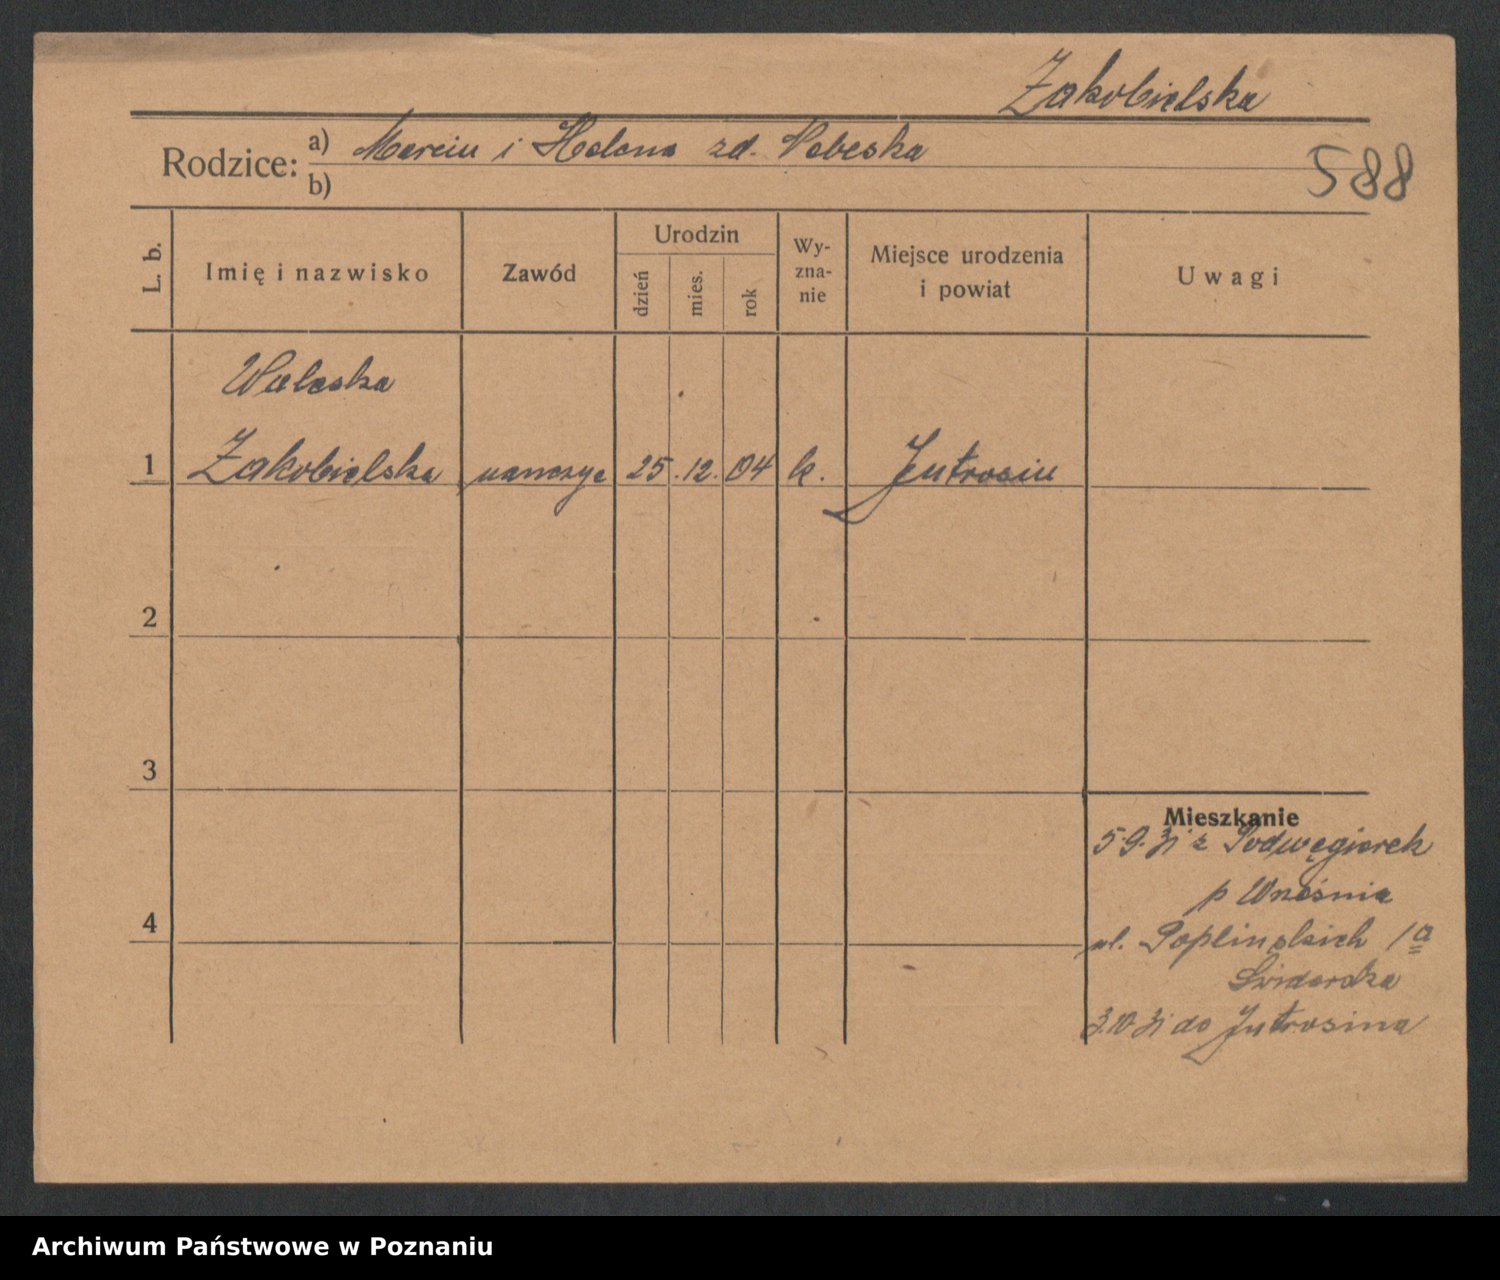 Zakobielska
Rodzice: a) Marcin i Helena zd.
b)
588
L. b.
Imię i nazwisko
Zawód
Urodzin
dzień
mies.
rok
Wy-
zna-
nie
Miejsce urodzenia
i powiat
Uwagi
Waleska
1 Zakobielska nauczyc 25. 12. 04 k. Jutrosin
2
3
Mieszkanie
5.9.31 z Podwęgierek
p Września
4
ul. Poplinskich 1a
Świderska
3.10.31 do Jutrosina
Archiwum Państwowe w Poznaniu